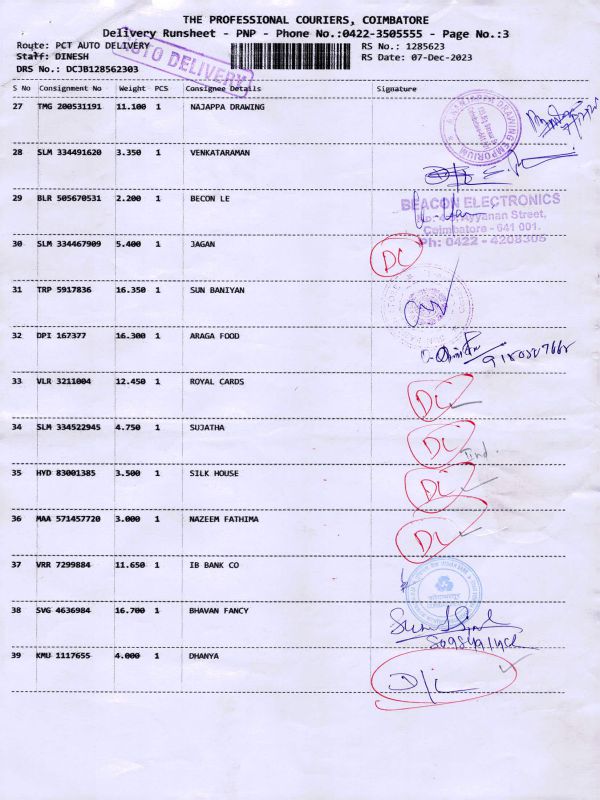 THE PROFESSIONAL COURIERS, COIMBATORE
Delivery Runsheet - PNP - Phone No.:0422-3505555 - Page No.:3
Route: PCT AUTO DELIVERY
RS No.: 1285623
Staff: DINESH
RS Date: 07-Dec-2023
DRS No.: DCJB128562303
AUTO DELIVERY
S No Consignment No Weight PCS Consignee Details Signature
27 TMG 200531191 11.100 1 NAJAPPA DRAWING
DRAWING EMPORIUM
28 SLM 334491620 3.350 1 VENKATARAMAN
29 BLR 505670531 2.200 1 BECON LE
BEACON ELECTRONICS
Ayyanan Street,
Coimbatore - 641 001.
Ph: 0422 - 4208305
30 SLM 334467909 5.400 1 JAGAN
DC
31 TRP 5917836 16.350 1 SUN BANIYAN
32 DPI 167377 16.300 1 ARAGA FOOD
33 VLR 3211004 12.450 1 ROYAL CARDS
DC
34 SLM 334522945 4.750 1 SUJATHA
DC
35 HYD 83001385 3.500 1 SILK HOUSE
DC
36 MAA 571457720 3.000 1 NAZEEM FATHIMA
DC
37 VRR 7299884 11.650 1 IB BANK CO
38 SVG 4636984 16.700 1 BHAVAN FANCY
39 KMU 1117655 4.000 1 DHANYA
D/C